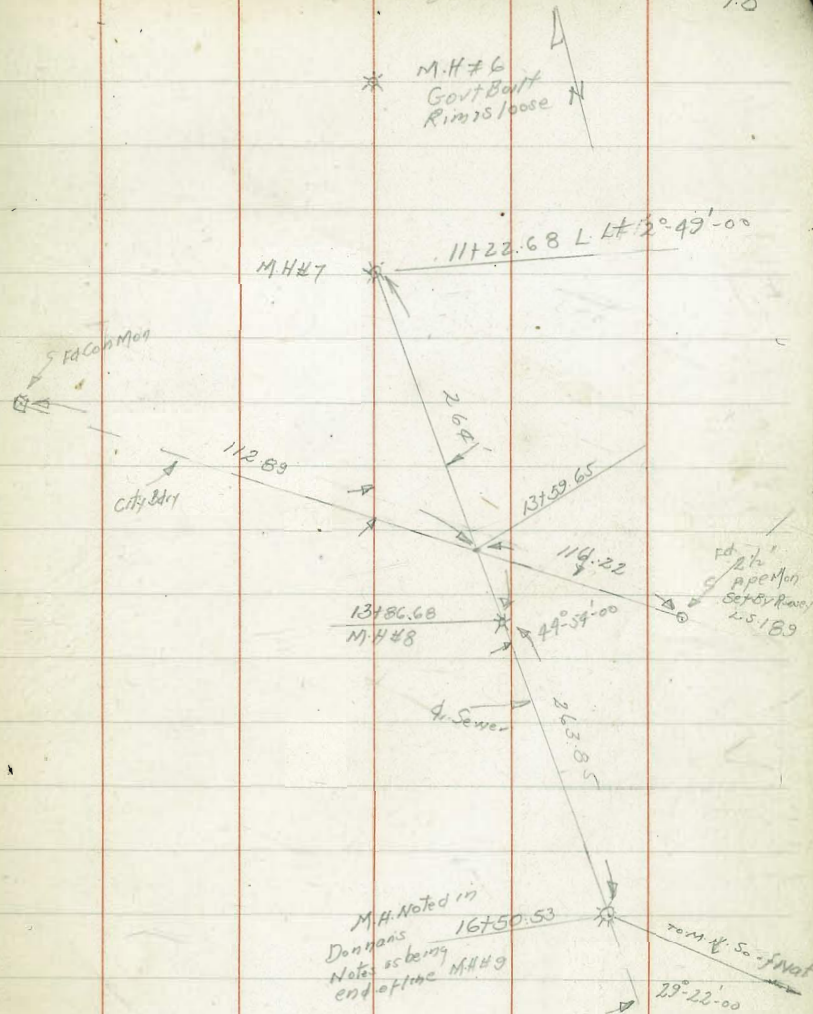 M.H # 6
Govt Built
Rim is loose
N
11+22.68 L Lt 12°-49'-00
M.H #7
Fd Con Mon
264'
112.89
City Bdry
13+59.65
116.22
Fd 2½"
Pipe Mon
Set By
L.S. 189
13+86.68
M.H #8
44°-54'-00
Sewer
263.85
M.H. Noted in
Donnans
Notes as being
end of line M.H #9
16+50.53
To M.H.
29°-22'-00